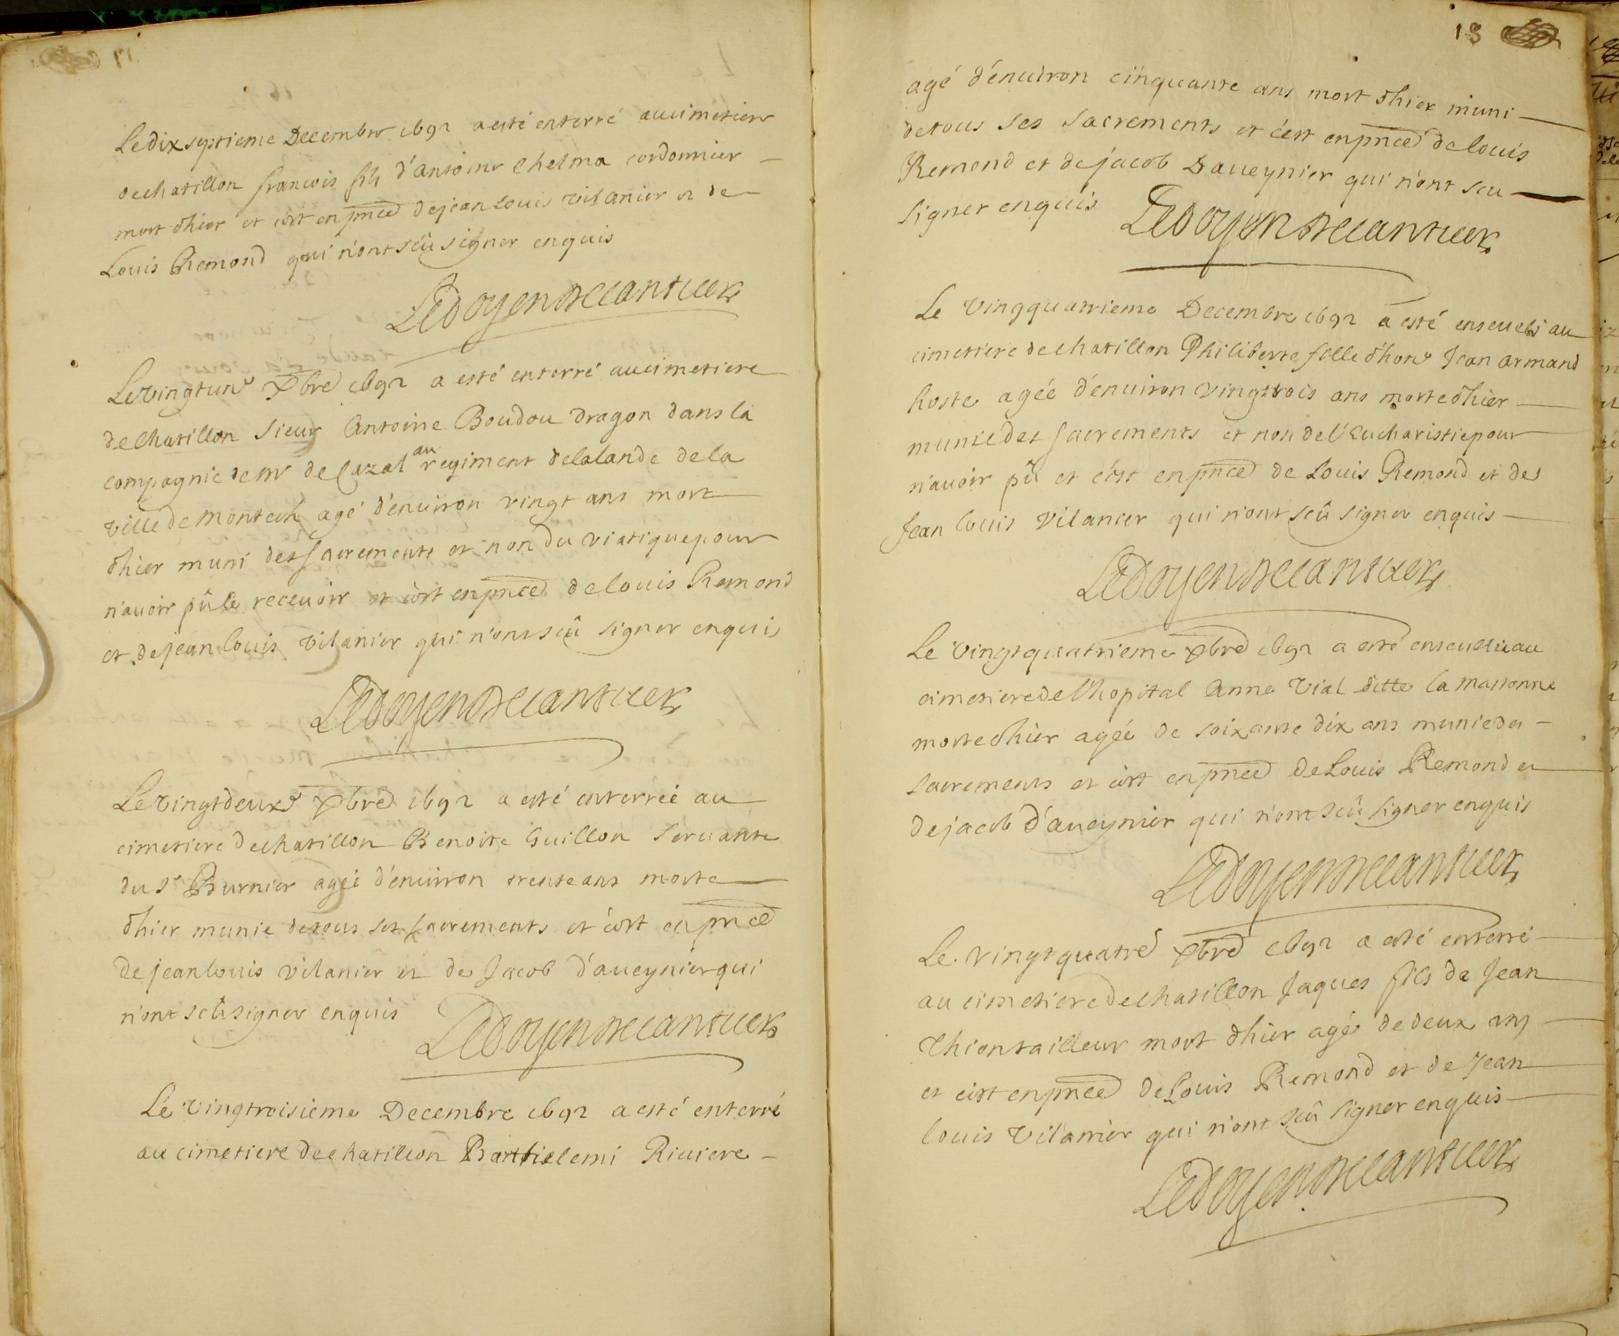 Le dix septieme Decembre 1692 a esté enterré au cimetiere
de chatillon francois fils d'antoine Chelma cordonnier
mort d'hier et c'est en pnce de jean louis vilanier et de
Louis Remond qui n'ont sçû signer enquis
Ledoyen
Le vingtun xbre 1692 a esté enterré au cimetiere
de chatillon Sieur Antoine Boudou Dragon dans la
compagnie de mr de Cazal au regiment de lalande de la
ville de montech agé d'environ vingt ans mort
d'hier muni des sacrements et non du viatique pour
n'avoir pû le recevoir et c'est en pnce de louis Remond
et de jean louis vilanier qui n'ont scû signer enquis
Ledoyen
Le vingtdeux xbre 1692 a esté enterrée au
cimetiere de chatillon Benoite Guillon servante
du Sr Burnier agée d'environ trente ans morte
d'hier munie de tous ses sacrements et c'est en pnce
de jean louis vilanier et de Jacob d'aveynier qui
n'ont scû signer enquis
Ledoyen
Le vingtroisieme Decembre 1692 a esté enterré
au cimetiere de chatillon Barthelemi Riviere
18
agé d'environ cinquante ans mort d'hier muni
de tous ses sacrements et c'est en pnce de louis
Remond et de jacob Daveynier qui n'ont sceu
signer enquis
Ledoyen
Le vingquatrieme Decembre 1692 a esté enseveli au
cimetiere de chatillon Philiberte fille d'hone Jean armand
hoste agée d'environ vingtrois ans morte d'hier
munie des sacrements et non de l'Eucharistie pour
n'avoir pû et c'est en pnce de Louis Remond et de
Jean louis vilanier qui n'ont scû signer enquis
Ledoyen
Le vingtquatrieme xbre 1692 a esté ensevelie au
cimetiere de l'hopital Anne Vial ditte la massonne
morte d'hier agée de soixante dix ans munie des
sacrements et c'est en pnce de Louis Remond et
de jacob d'aveynier qui n'ont scû signer enquis
Ledoyen
Le vingtquatre xbre 1692 a esté enterré
au cimetiere de chatillon Jaques fils de Jean
Thion tailleur mort d'hier agé de deux ans
et c'est en pnce de Louis Remond et de Jean
louis vilanier qui n'ont scû signer enquis
Ledoyen